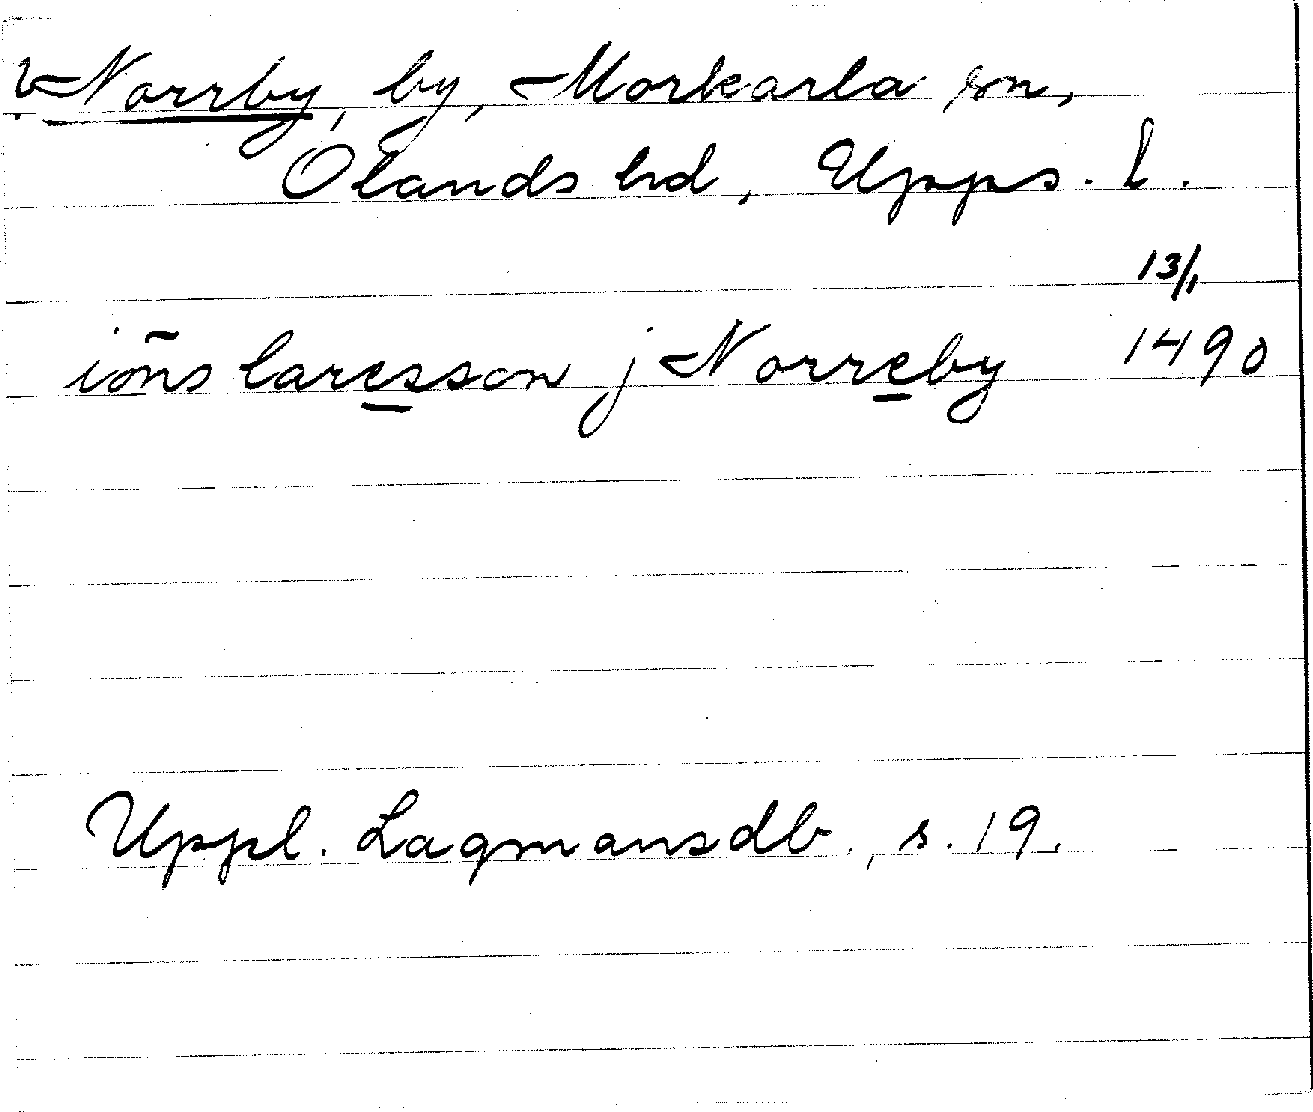 v Norrby, by, Morkarla sn,
Olands hd, Upps. l.
13/1
iōns laresson j Norreby 1490
Uppl. Lagmansdb., s. 19.